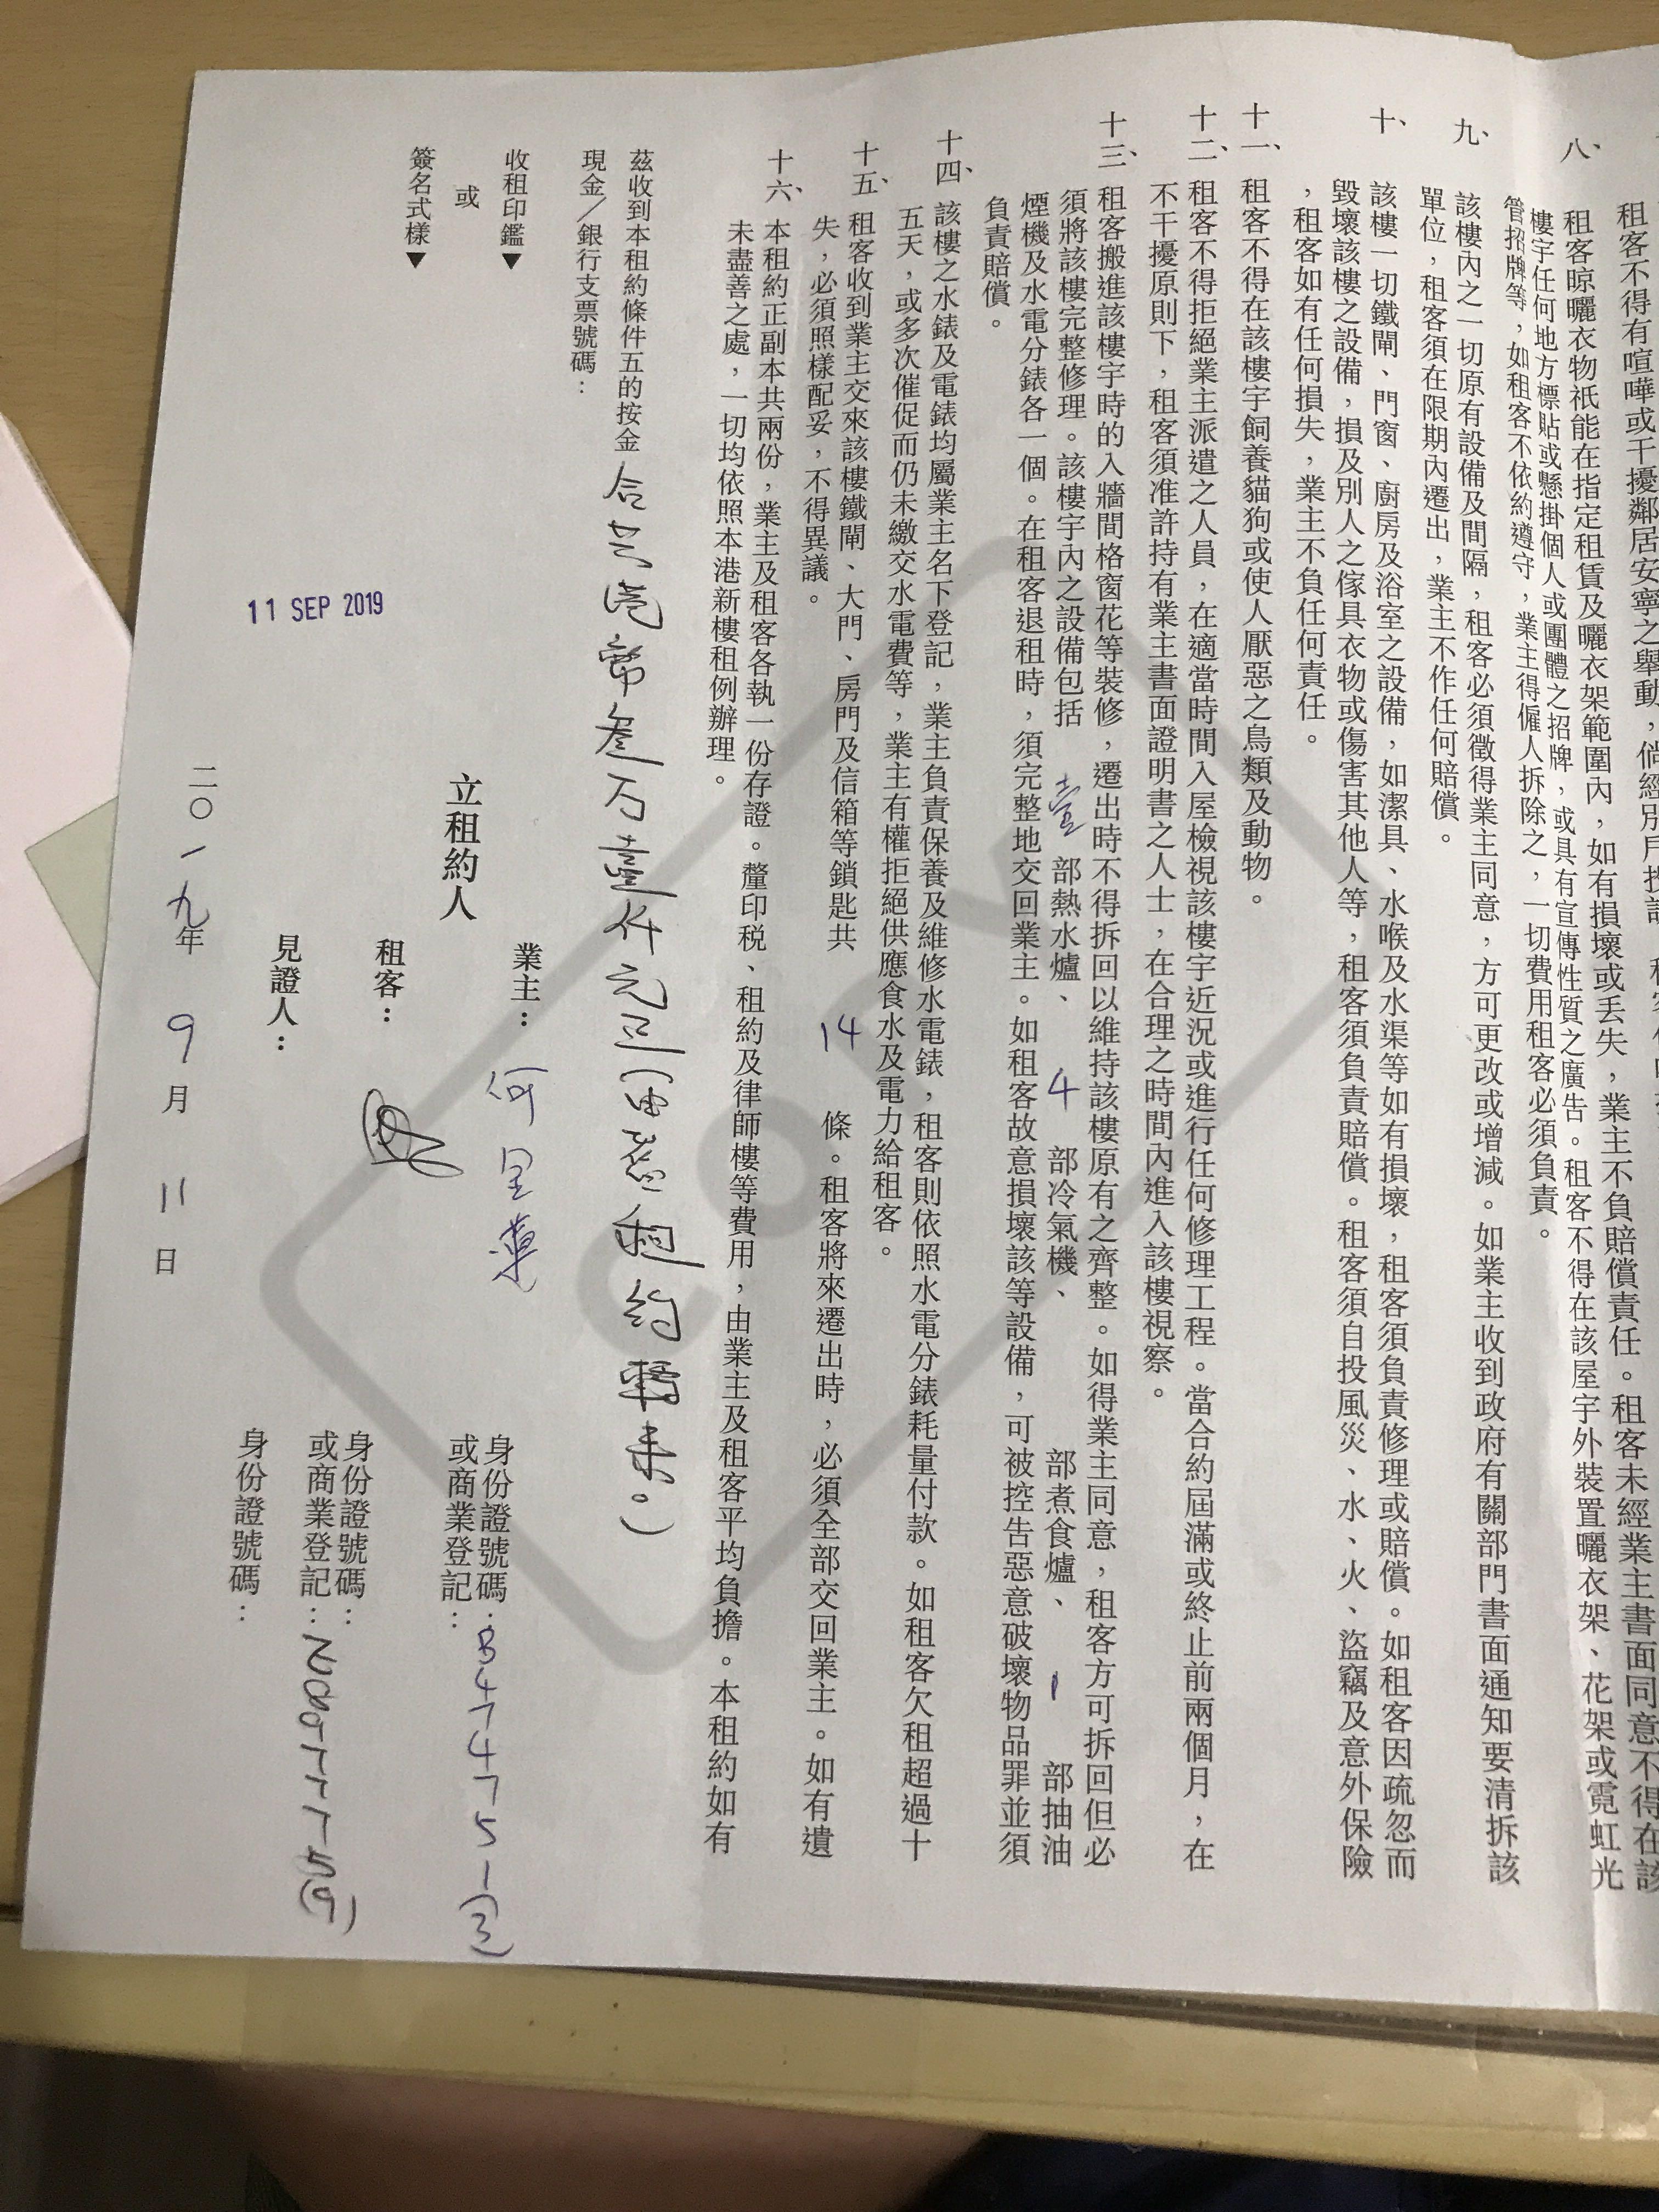 租客不得有喧嘩或干擾鄰居安寧之舉動，倘經別戶投訴
八、租客晾曬衣物祇能在指定租賃及曬衣架範圍內，如有損壞或丟失，業主不負賠償責任。租客未經業主書面同意不得在該
樓宇任何地方標貼或懸掛個人或團體之招牌，或具有宣傳性質之廣告。租客不得在該屋宇外裝置曬衣架、花架或霓虹光
管招牌等，如租客不依約遵守，業主得僱人拆除之，一切費用租客必須負責。
九、該樓內之一切原有設備及間隔，租客必須徵得業主同意，方可更改或增減。如業主收到政府有關部門書面通知要清拆該
單位，租客須在限期內遷出，業主不作任何賠償。
十、該樓一切鐵閘、門窗、廚房及浴室之設備，如潔具、水喉及水渠等如有損壞，租客須負責修理或賠償。如租客因疏忽而
毀壞該樓之設備，損及別人之傢具衣物或傷害其他人等，租客須負責賠償。租客須自投風災、水、火、盜竊及意外保險
，租客如有任何損失，業主不負任何責任。
十一、租客不得在該樓宇飼養貓狗或使人厭惡之鳥類及動物。
十二、租客不得拒絕業主派遣之人員，在適當時間入屋檢視該樓宇近況或進行任何修理工程。當合約屆滿或終止前兩個月，在
不干擾原則下，租客須准許持有業主書面證明書之人士，在合理之時間內進入該樓視察。
十三、租客搬進該樓宇時的入牆間格窗花等裝修，遷出時不得拆回以維持該樓原有之齊整。如得業主同意，租客方可拆回但必
須將該樓完整修理。該樓宇內之設備包括 壹 部熱水爐、 4 部冷氣機、 部煮食爐、 1 部抽油
煙機及水電分錶各一個。在租客退租時，須完整地交回業主。如租客故意損壞該等設備，可被控告惡意破壞物品罪並須
負責賠償。
十四、該樓之水錶及電錶均屬業主名下登記，業主負責保養及維修水電錶，租客則依照水電分錶耗量付款。如租客欠租超過十
五天，或多次催促而仍未繳交水電費等，業主有權拒絕供應食水及電力給租客。
十五、租客收到業主交來該樓鐵閘、大門、房門及信箱等鎖匙共 14 條。租客將來遷出時，必須全部交回業主。如有遺
失，必須照樣配妥，不得異議。
十六、本租約正副本共兩份，業主及租客各執一份存證。釐印稅、租約及律師樓等費用，由業主及租客平均負擔。本租約如有
未盡善之處，一切均依照本港新樓租例辦理。
茲收到本租約條件五的按金 合共港幣叁万壹仟元正（由舊租約轉来。）
現金／銀行支票號碼：
收租印鑑▼
或
簽名式樣▼
COPY
立租約人
業主： 何
身份證號碼：B474751(3)
或商業登記：
租客：
身份證號碼：
或商業登記：
見證人：
身份證號碼：
11 SEP 2019
二〇一九年 9 月 11 日